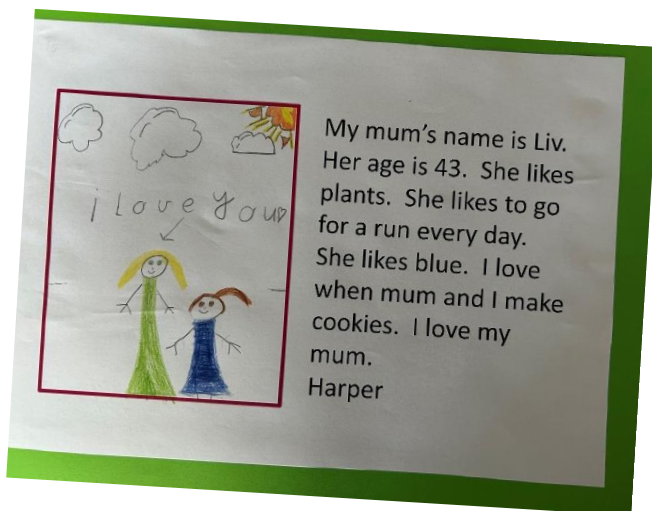 i love you
My mum's name is Liv.
Her age is 43.  She likes
plants.  She likes to go
for a run every day.
She likes blue.  I love
when mum and I make
cookies.  I love my
mum.
Harper